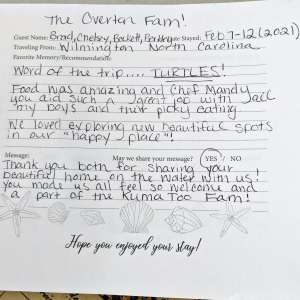 The Overton Fam!
Guest Name: Brad, Chelsey, Beckett, Dates Stayed: Feb 7-12 (2021)
Traveling From: Wilmington North Carolina
Favorite Memory/Recommendation:
Word of the trip.... TURTLES!
Food was amazing and Chef Mandy
you did such a great job with Jack
my boys and their picky eating.
We loved exploring new beautiful spots
in our "happy place"!
Message: May we share your message? YES / NO
Thank you both for sharing your
beautiful home on the water with us!
you made us all feel so welcome and
a part of the Kuma Too Fam!
Hope you enjoyed your stay!